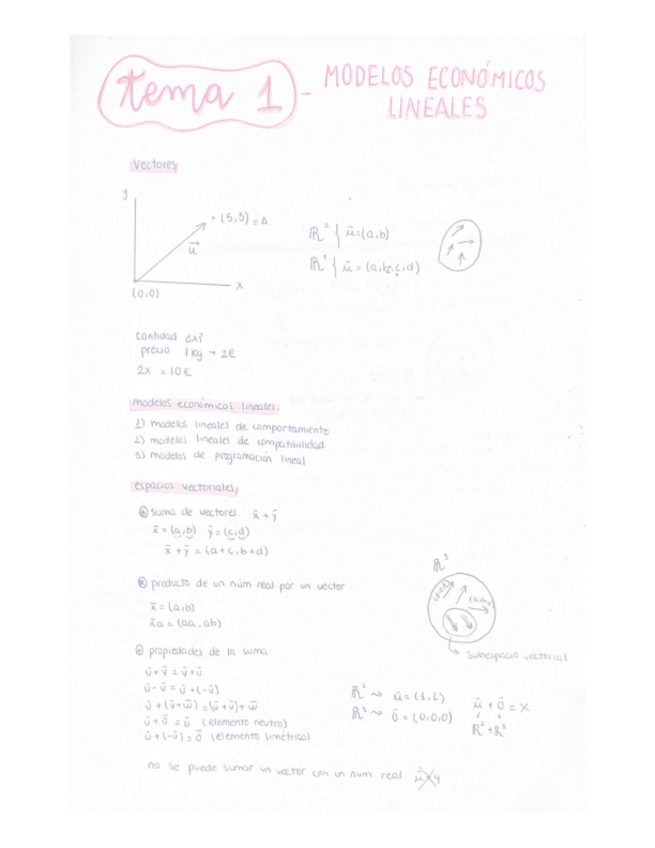 tema 1 - MODELOS ECONÓMICOS
LINEALES
Vectores
y
• (5,5) = A
u
x
(0,0)
ℝ² { ū=(a,b)
ℝ⁴ { ū = (a,b,c,d)
cantidad ¿x?
precio 1kg → 2€
2x = 10€
modelos económicos lineales,
1) modelos lineales de comportamiento
2) modelos lineales de compatibilidad
3) modelos de programación lineal
espacios vectoriales,
a) suma de vectores. x̄+ȳ
x̄ = (a,b) ȳ = (c,d)
x̄ + ȳ = (a+c, b+d)
ℝ³
b) producto de un núm real por un vector
x̄ = (a,b)
subespacio vectorial
propiedades de la suma
ū+v̄ = v̄+ū
ū-v̄ = ū+(-v̄)
ū+(v̄+w̄) = (ū+v̄)+w̄
ū+ō = ū (elemento neutro)
ū+(-ū) = ō (elemento simétrico)
ℝ² ⇝ ū = (1,1)
ℝ³ ⇝ ō = (0,0,0)
ū + ō = X
ℝ²+ℝ³
no se puede sumar un vector con un num real